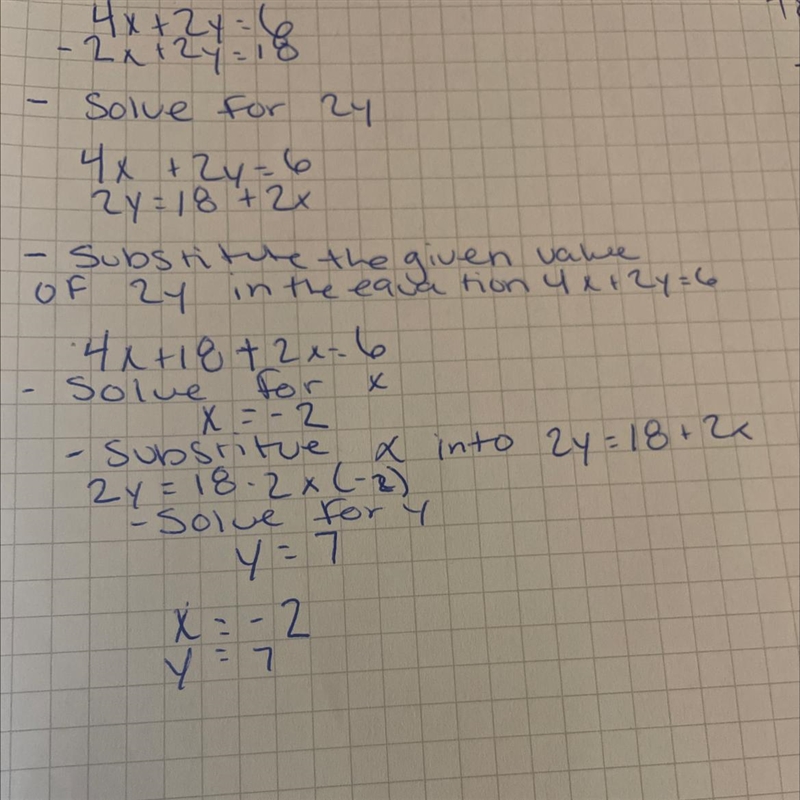 4x+2y=6
-2x+2y=18
- Solve for 2y
4x +2y=6
2y=18 +2x
- Substitute the given value
of 2y in the equation 4x+2y=6
4x+18+2x=6
- Solve for x
x=-2
- Substitue x into 2y=18+2x
2y=18·2x(-2)
-Solve for y
y=7
x=-2
y=7